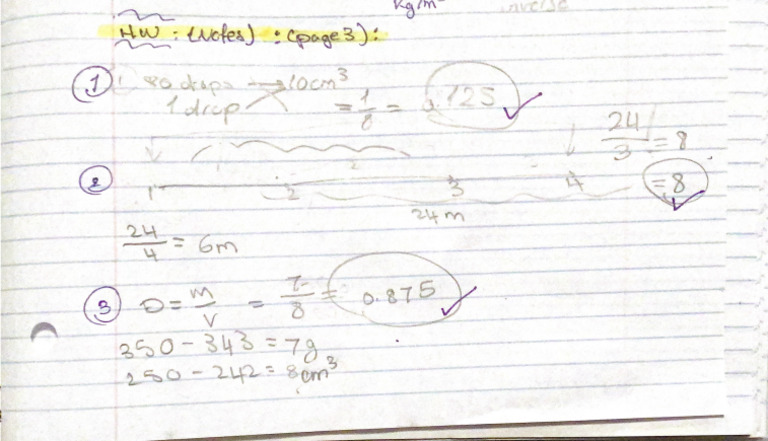 kg/m³
inverse
HW : (Notes) : (page 3) :
① 80 drops → 10cm³
1 drop = 1/8 = 0.125 ✓
24/3 = 8
1 2 3 4 = 8 ✓
2
24m
24/4 = 6m
③ D = m/V = 7/8 = 0.875 ✓
350 - 343 = 7g
250 - 242 = 8cm³